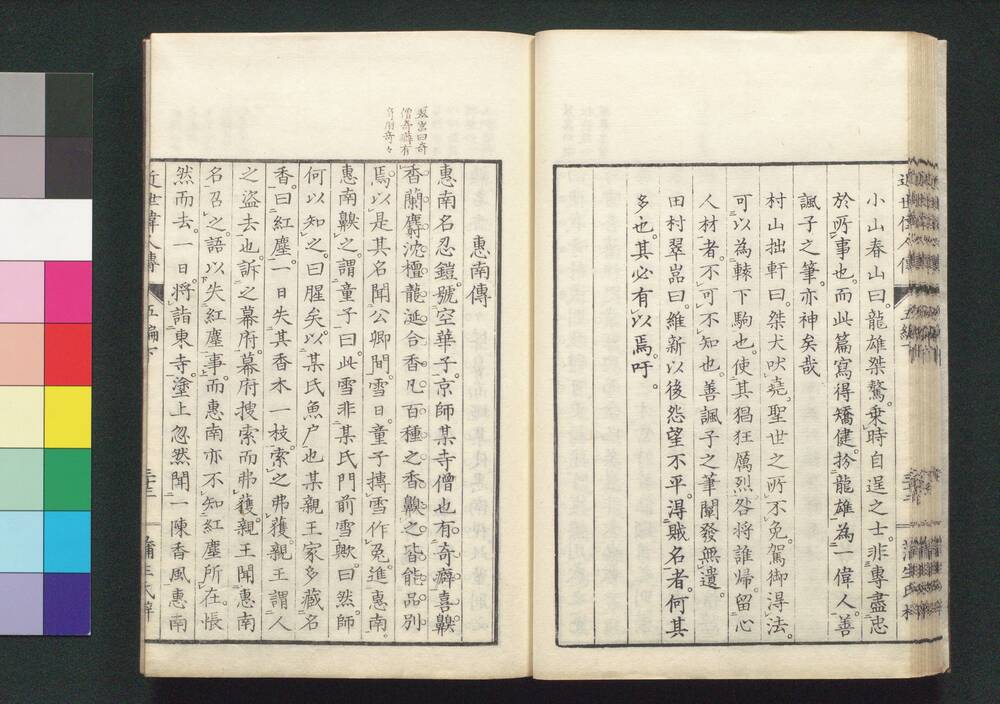 小山春山曰。龍雄桀驁。乘時自逞之士。非專盡忠
於所事也。而此篇寫得矯健。扮龍雄為一偉人。善
諷子之筆。亦神矣哉
村山拙軒曰。桀犬吠堯。聖世之所不免。駕御得法。
可以為轅下駒也。使其猖狂厲烈。咎將誰歸。留心
人材者。不可不知也。善諷子之筆闡發無遺。
田村翠嵒曰。維新以後怨望不平。得賊名者。何其
多也。其必有以焉。吁。
惠南傳
惠南名忍鎧。號空華子。京師某寺僧也。有奇癖。喜齅
香。蘭麝沈檀龍涎合香。凡百種之香。齅之皆能品別
焉。以是其名聞公卿間。雪日。童子摶雪作兔。進惠南。
惠南齅之。謂童子曰。此雪非某氏門前雪歟。曰然。師
何以知之。曰腥矣。以某氏魚戶也。某親王家多藏名
香。曰紅塵。一日失其香木一枝。索之弗獲。親王謂人
之盜去也。訴之幕府。幕府搜索而弗獲。親王聞惠南
名召之。語以失紅塵事。而惠南亦不知紅塵所在。悵
然而去。一日。將詣東寺。塗上忽然聞一陳香風。惠南
曰奇
僧奇癖有
近世偉人傳
五編下
蒲生氏梓